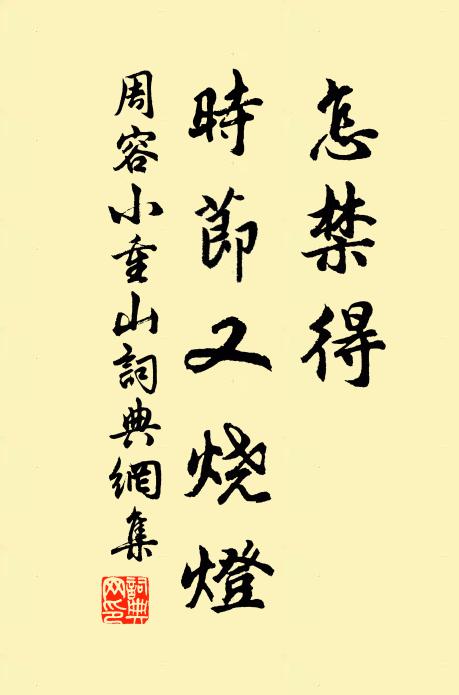 怎禁得
時節又燒燈
周容小重山詞典網集
詞典網印